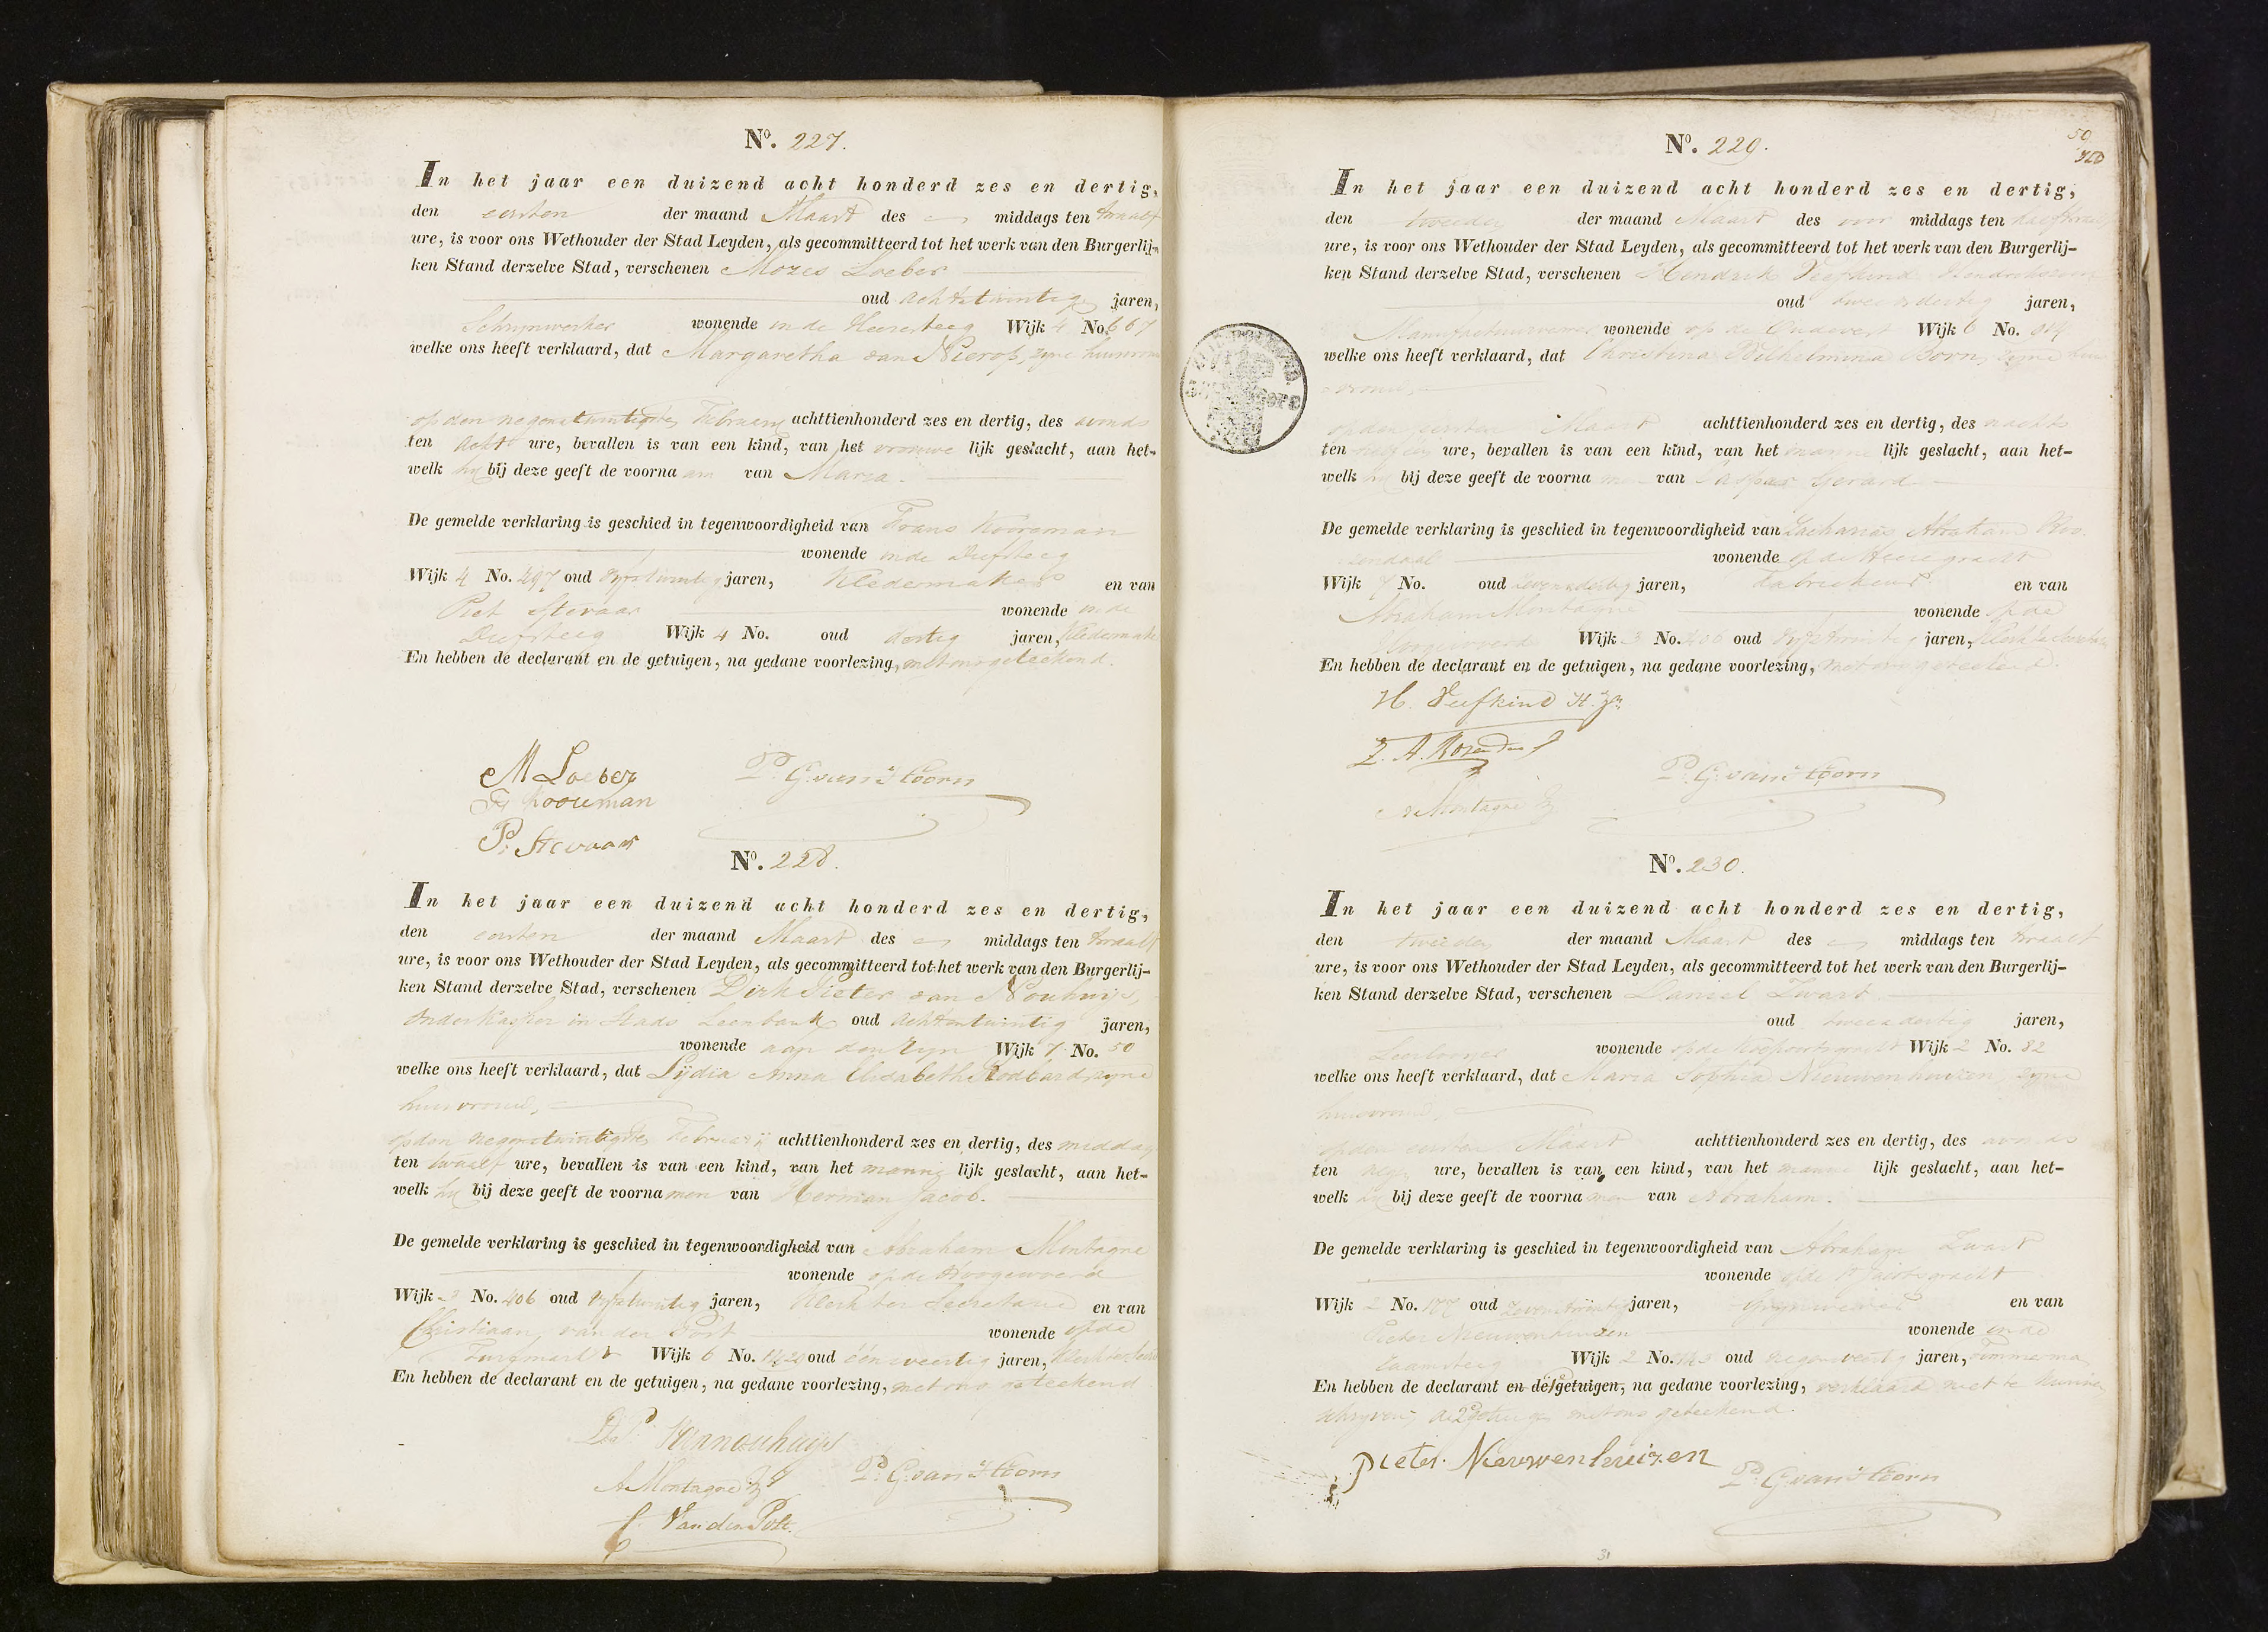 No. 227.
In het jaar een duizend acht honderd zes en dertig,
den eersten der maand Maart des middags ten twaalf
ure, is voor ons Wethouder der Stad Leyden, als gecommitteerd tot het werk van den Burgerlij-
ken Stand derzelve Stad, verschenen Mozes Loeber
oud achtetwintig jaren,
Schrijnwerker wonende in de Heeresteeg Wijk 4 No. 667
welke ons heeft verklaard, dat Margaretha van Nierop, zyne huisvrouw
op den negenetwintigsten Februarij achttienhonderd zes en dertig, des avonds
ten acht ure, bevallen is van een kind, van het vrouwe lijk geslacht, aan het-
welk hij bij deze geeft de voorna am van Maria.
De gemelde verklaring is geschied in tegenwoordigheid van Frans Kooreman
wonende in de Diefsteeg
Wijk 4 No. 497 oud vyfetwintig jaren, Kledermaker en van
Piet Stevaar wonende in de
Diefsteeg Wijk 4 No. oud dertig jaren, Kledermaker
En hebben de declarant en de getuigen, na gedane voorlezing, met ons geteekend.
M Loeber
Fs Kooreman
P. G. van 't Hoorn
P. Stevaar
No. 228.
In het jaar een duizend acht honderd zes en dertig,
den eersten der maand Maart des middags ten twaalf
ure, is voor ons Wethouder der Stad Leyden, als gecommitteerd tot het werk van den Burgerlij-
ken Stand derzelve Stad, verschenen Dirk Pieter van Nouhuijs,
Onderkassier in Stads Leenbank oud achtentwintig jaren,
wonende aan den Ryn Wijk 7 No. 50
welke ons heeft verklaard, dat Lydia Anna Elisabeth Rodbard, zyne
huisvrouw,
op den negenetwintigsten Februarij achttienhonderd zes en dertig, des middags
ten twaalf ure, bevallen is van een kind, van het manne lijk geslacht, aan het-
welk hij bij deze geeft de voorna men van Herman Jacob.
De gemelde verklaring is geschied in tegenwoordigheid van Abraham Montagne
wonende op de Hoogewoerd
Wijk 3 No. 406 oud vyfetwintig jaren, Klerk ter Secretarie en van
Christiaan van der Post wonende op de
Turfmarkt Wijk 6 No. 1420 oud éénenveertig jaren, Klerk ter Secr
En hebben de declarant en de getuigen, na gedane voorlezing, met ons geteekend
D. P. van Nouhuijs
A Montagne Zn
P. G. van 't Hoorn
C. Van der Post.
50
No. 229.
In het jaar een duizend acht honderd zes en dertig,
den tweeden der maand Maart des voor middags ten
ure, is voor ons Wethouder der Stad Leyden, als gecommitteerd tot het werk van den Burgerlij-
ken Stand derzelve Stad, verschenen Hendrik Veefkind Hendrikszoon
oud twee en dertig jaren,
wonende op de Oudevest Wijk 6 No.
welke ons heeft verklaard, dat Christina Wilhelmina Born, zyne huis
vrouw,
op den eersten Maart achttienhonderd zes en dertig, des nachts
ten ure, bevallen is van een kind, van het manne lijk geslacht, aan het-
welk hij bij deze geeft de voorna men van Caspar Gerard
De gemelde verklaring is geschied in tegenwoordigheid van Zacharias Abraham Roo
zendaal wonende op de Heeregracht
Wijk 7 No. oud zevenendertig jaren, Fabriekeur en van
Abraham Montagne wonende op de
Hoogewoerd Wijk 3 No. 406 oud vyfetwintig jaren, Klerk ter Secretarie
En hebben de declarant en de getuigen, na gedane voorlezing, met ons geteekend.
H. Veefkind H.zn
Z. A. Rozendaal
P. G. van 't Hoorn
A Montagne Zn
No. 230.
In het jaar een duizend acht honderd zes en dertig,
den tweeden der maand Maart des middags ten twaalf
ure, is voor ons Wethouder der Stad Leyden, als gecommitteerd tot het werk van den Burgerlij-
ken Stand derzelve Stad, verschenen Daniel Zwart
oud tweeendertig jaren,
Leerlooijer wonende op de Koepoortsgracht Wijk 2 No. 82
welke ons heeft verklaard, dat Maria Sophia Nieuwenhuizen, zyne
huisvrouw,
op den eersten Maart achttienhonderd zes en dertig, des avonds
ten ure, bevallen is van een kind, van het manne lijk geslacht, aan het-
welk hij bij deze geeft de voorna men van Abraham.
De gemelde verklaring is geschied in tegenwoordigheid van Abraham Zwart
wonende op de St Jacobsgracht
Wijk 2 No. oud zevenetwintig jaren, en van
Pieter Nieuwenhuizen wonende in de
Raamsteeg Wijk 2 No. oud negenenveertig jaren, timmerman
En hebben de declarant en de 1e getuigen, na gedane voorlezing, verklaard niet te kunnen
schryven, de 2e getuige met ons geteekend.
Pieter Nieuwenhuizen
P. G. van 't Hoorn
31